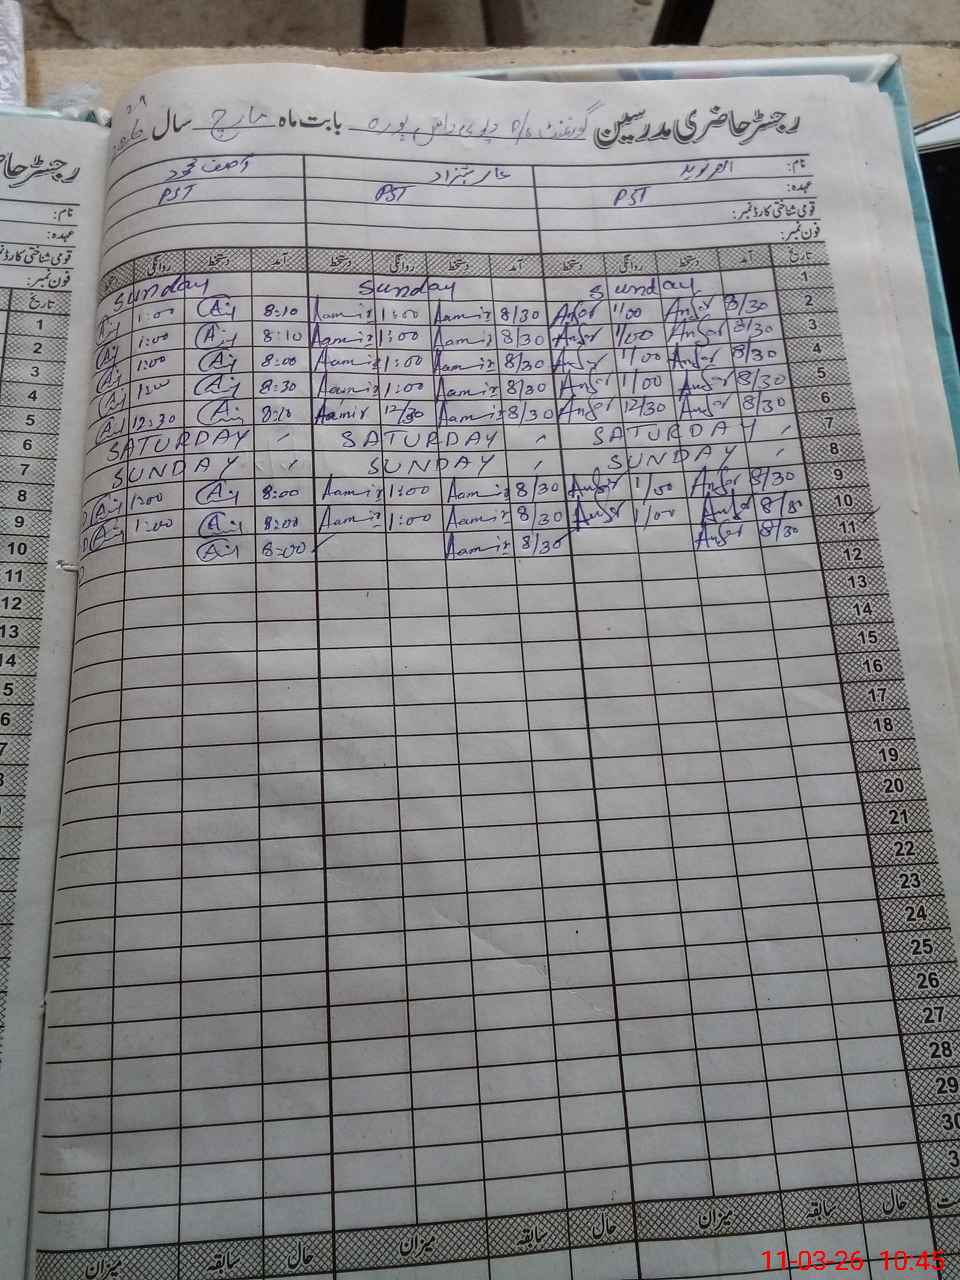 رجسٹر حاضری مدرسین گورنمنٹ بابت ماہ مارچ سال 2026
نام: عامر شہزاد آصف محمود
عہدہ: PST PST PST
قومی شناختی کارڈ نمبر:
فون نمبر:
تاریخ آمد دستخط روانگی دستخط آمد دستخط روانگی دستخط آمد دستخط روانگی
1 Sunday Sunday Sunday
2 8/30 Ansar 1/00 Ansar 8/30 Aamir 1:00 Aamir 8:10 1:00
3 8/30 Ansar 1/00 Ansar 8/30 Aamir 1:00 Aamir 8:10 1:00
4 8/30 Ansar 1/00 Ansar 8/30 Aamir 1:00 Aamir 8:00 1:00
5 8/30 Ansar 1/00 Ansar 8/30 Aamir 1:00 Aamir 8:30 1:00
6 8/30 Ansar 12/30 Ansar 8/30 Aamir 12/30 Aamir 8:10 12:30
7 SATURDAY SATURDAY SATURDAY
8 SUNDAY SUNDAY SUNDAY
9 8/30 Ansar 1/00 Ansar 8/30 Aamir 1:00 Aamir 8:00 1:00
10 Ansar 1/00 Ansar 8/30 Aamir 1:00 Aamir 8:00 1:00
11 8/30 Ansar 8/30 Aamir 8:00
12
13
14
15
16
17
18
19
20
21
22
23
24
25
26
27
28
29
30
3
حال سابقہ میزان حال سابقہ میزان حال سابقہ میزان
رجسٹر حا
نام:
عہدہ:
قومی شناختی کارڈ نمبر
فون نمبر:
تاریخ
1
2
3
4
5
6
7
8
9
10
11
12
13
14
5
6
7
11-03-26 10:45